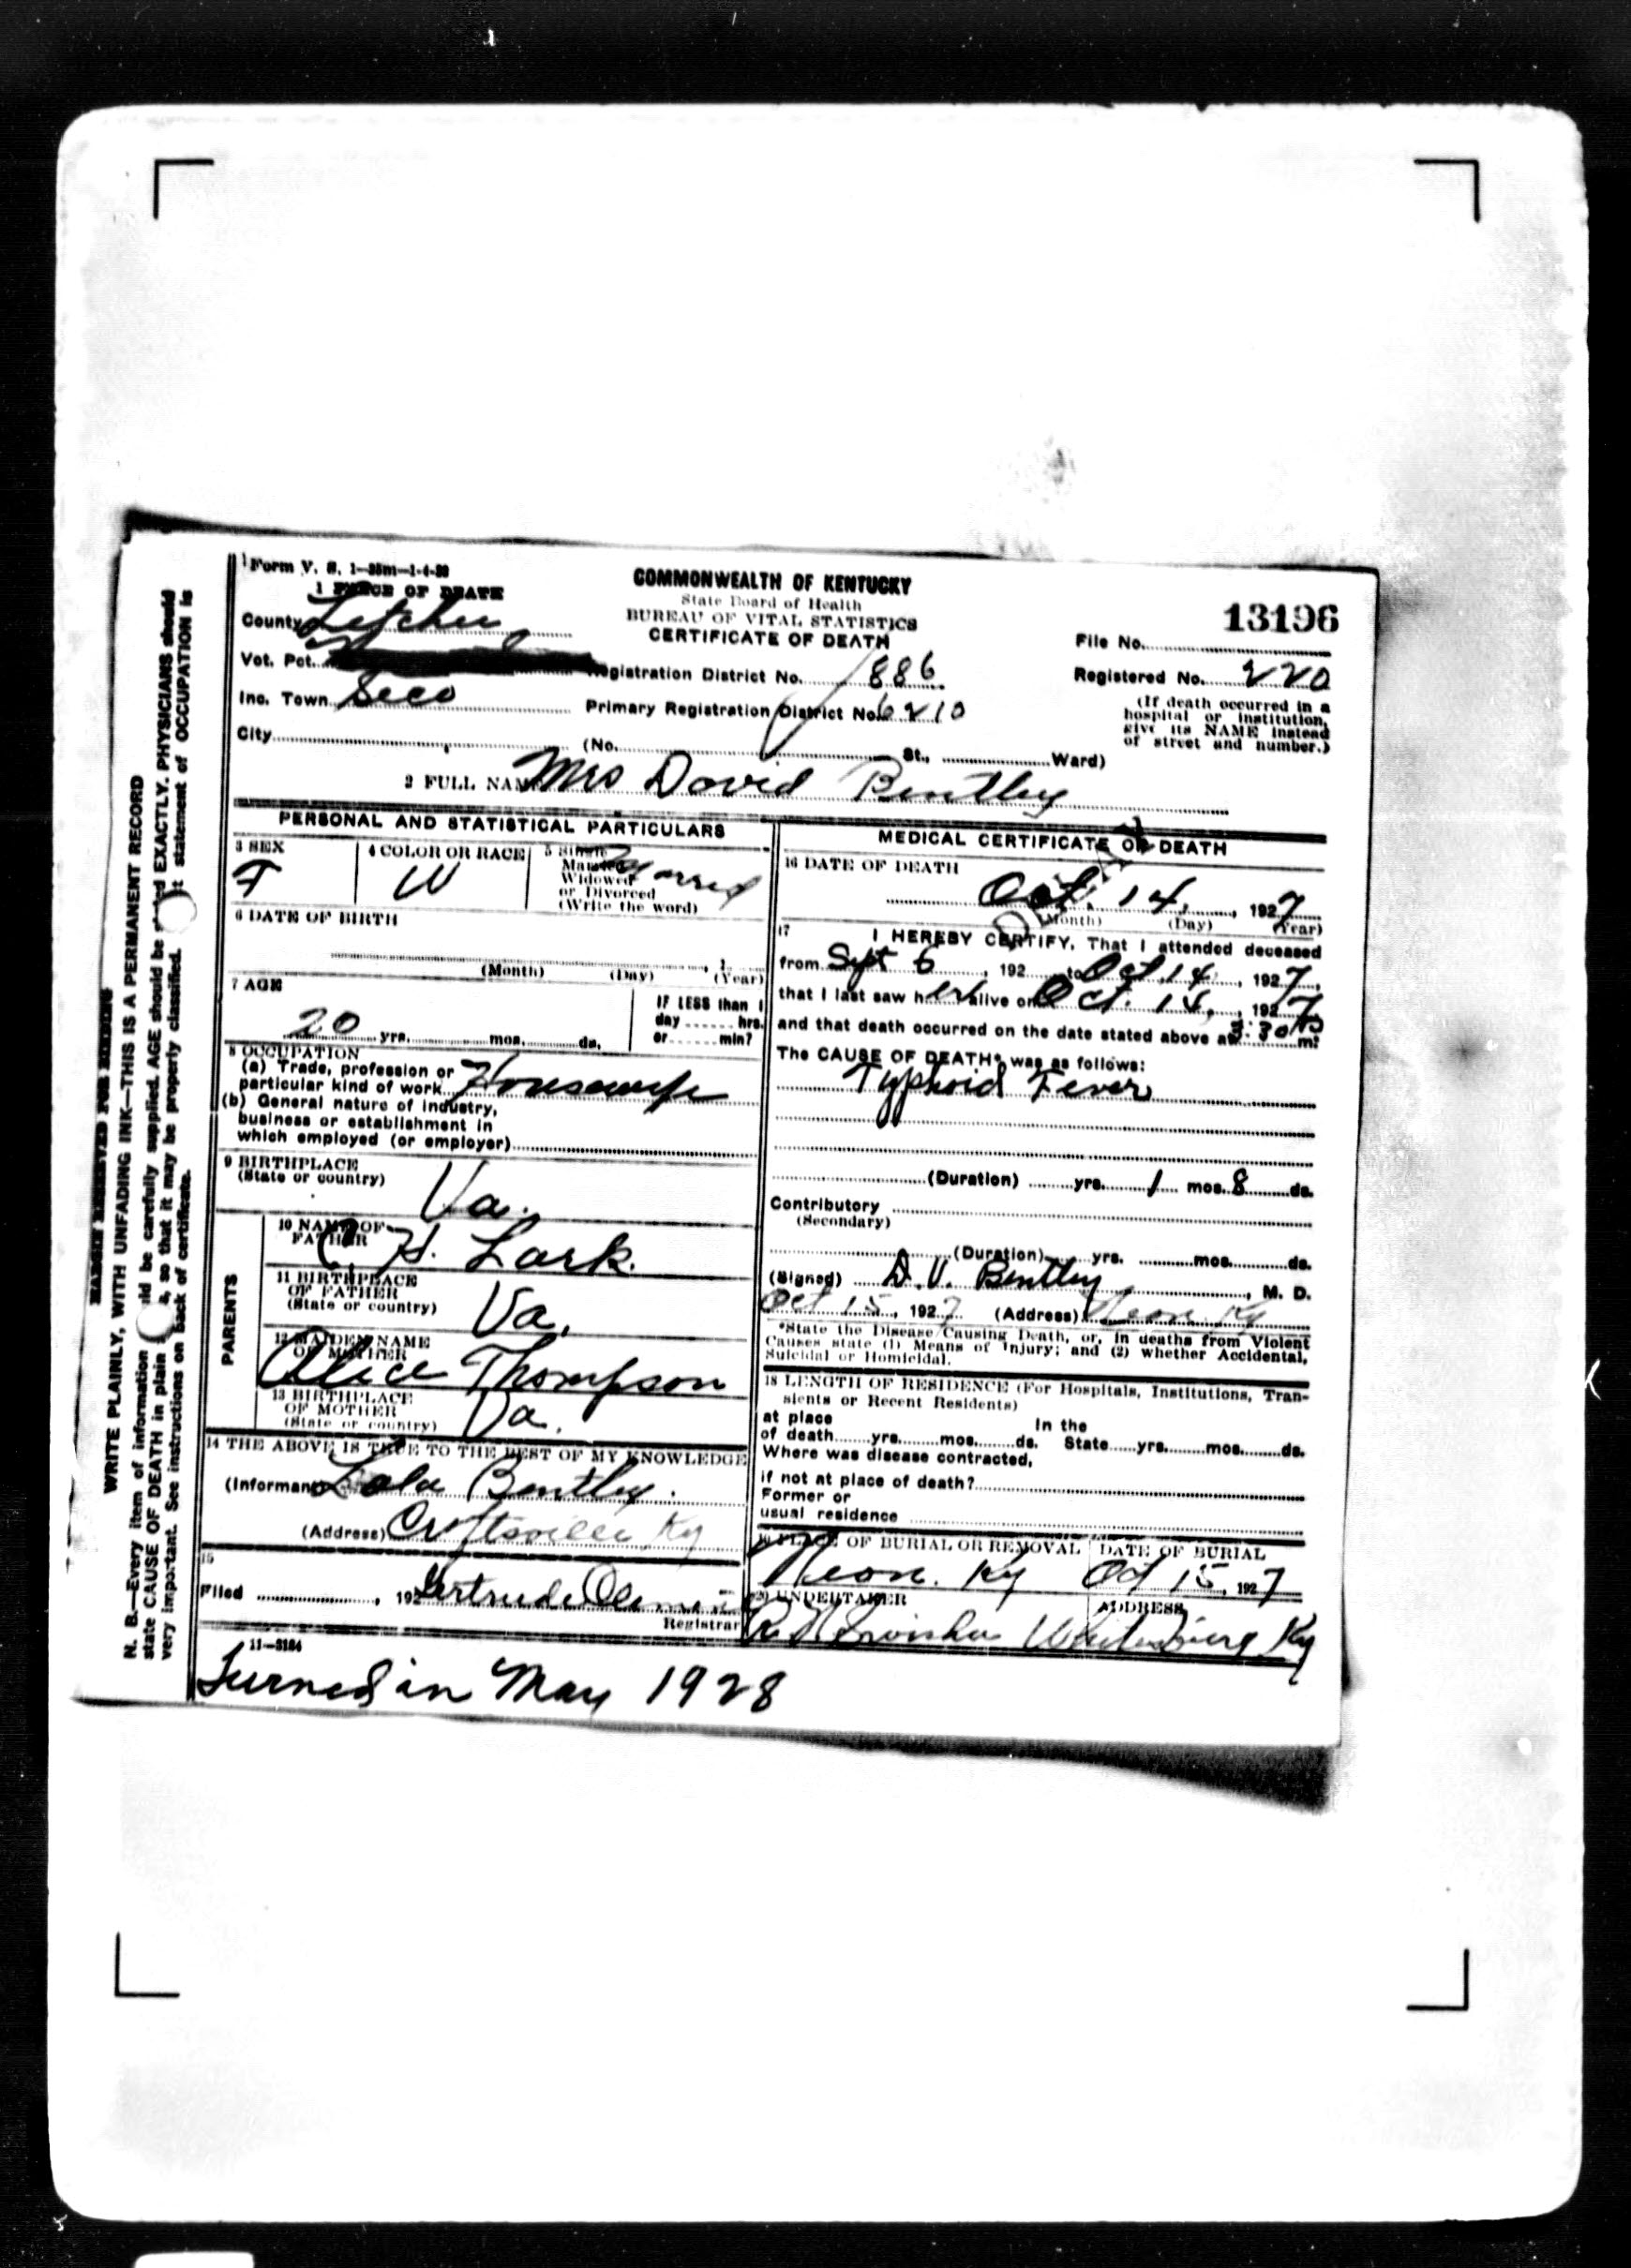 Form V. S. 1—35m—1-4-23
1 PLACE OF DEATH
COMMONWEALTH OF KENTUCKY
State Board of Health
BUREAU OF VITAL STATISTICS
CERTIFICATE OF DEATH
13196
File No.
County Letcher
Vot. Pct.
Registration District No. 886
Registered No. 220
Inc. Town Seco
Primary Registration District No. 6210
(If death occurred in a
hospital or institution,
give its NAME instead
of street and number.)
City (No. St., Ward)
2 FULL NAME Mrs David Bentley
PERSONAL AND STATISTICAL PARTICULARS
3 SEX
F
4 COLOR OR RACE
W
5 Single
Married
Widowed
or Divorced
(Write the word)
Married
6 DATE OF BIRTH
, 1
(Month) (Day) (Year)
7 AGE
20 yrs. mos. ds.
IF LESS than 1
day hrs.
or min?
8 OCCUPATION
(a) Trade, profession or
particular kind of work Housewife
(b) General nature of industry,
business or establishment in
which employed (or employer)
9 BIRTHPLACE
(State or country)
Va.
PARENTS
10 NAME OF
FATHER
H. Lark.
11 BIRTHPLACE
OF FATHER
(State or country)
Va.
12 MAIDEN NAME
OF MOTHER
Alice Thompson
13 BIRTHPLACE
OF MOTHER
(State or country)
Va.
14 THE ABOVE IS TRUE TO THE BEST OF MY KNOWLEDGE
(Informant) Lola Bentley.
(Address) Craftsville Ky
15
Filed , 192 Gertrude
Registrar
11—3184
MEDICAL CERTIFICATE OF DEATH
DELAY
16 DATE OF DEATH
Oct. 14, , 1927
(Month) (Day) (Year)
17 I HEREBY CERTIFY, That I attended deceased
from Sept 6 , 192 to Oct 14 , 1927,
that I last saw her alive on Oct. 14, , 1927,
and that death occurred on the date stated above at 3:30 m.
The CAUSE OF DEATH* was as follows:
Typhoid Fever
(Duration) yrs. 1 mos. 8 ds.
Contributory
(Secondary)
(Duration) yrs. mos. ds.
(Signed) D. V. Bentley , M. D.
Oct 15 , 1927 (Address) Neon Ky
*State the Disease Causing Death, or, in deaths from Violent
Causes state (1) Means of Injury; and (2) whether Accidental,
Suicidal or Homicidal.
18 LENGTH OF RESIDENCE (For Hospitals, Institutions, Tran-
sients or Recent Residents)
at place In the
of death yrs. mos. ds. State yrs. mos. ds.
Where was disease contracted,
if not at place of death?
Former or
usual residence
19 PLACE OF BURIAL OR REMOVAL
Neon. Ky
DATE OF BURIAL
Oct 15, 1927
20 UNDERTAKER
ADDRESS
Whitesburg Ky
Turned in May 1928
MARGIN RESERVED FOR BINDING
WRITE PLAINLY, WITH UNFADING INK—THIS IS A PERMANENT RECORD
N. B.—Every item of information should be carefully supplied. AGE should be stated EXACTLY. PHYSICIANS should
state CAUSE OF DEATH in plain terms, so that it may be properly classified. Exact statement of OCCUPATION is
very important. See instructions on back of certificate.